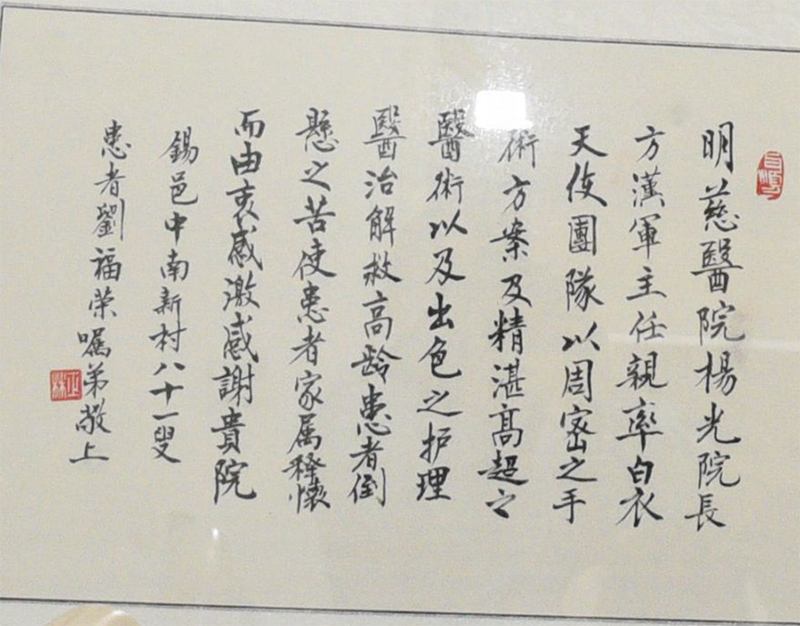 明慈醫院楊光院長
方漢軍主任親率白衣
天使團隊以周密之手
術方案及精湛高超之
醫術以及出色之护理
醫治解救高龄患者倒
懸之苦使患者家属释懷
而由衷感激感謝貴院
錫邑中南新村八十一叟
患者劉福荣嘱弟敬上